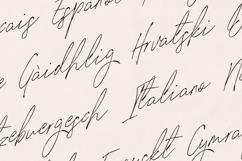 çais Español
Gàidhlig Hrvatski
tzebuergesch Italiano N
Cymra